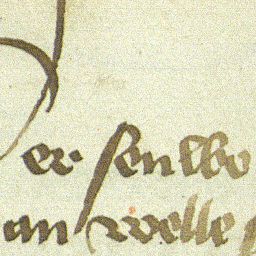 er senlbo
an welle